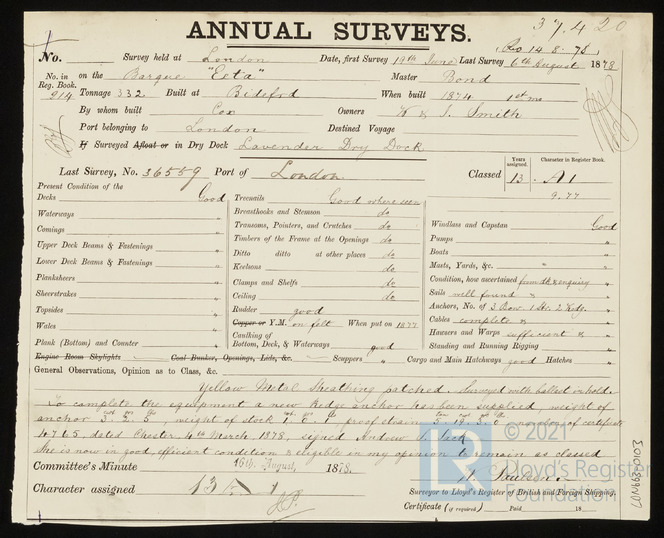 37420
ANNUAL SURVEYS.
Rec 14.8.78
No. Survey held at London Date, first Survey 19th June Last Survey 6th August 1878
No. in Reg. Book. 214 on the Barque "Eeta" Master Bond
Tonnage 332 Built at Bideford When built 1874 1st mo
By whom built Cox Owners W & J. Smith
Port belonging to London Destined Voyage
If Surveyed Afloat or in Dry Dock Lavender Dry Dock
Last Survey, No. 36559 Port of London Classed
Years assigned. 13 Character in Register Book. A1
9.77
Present Condition of the
Decks Good
Waterways "
Comings "
Upper Deck Beams & Fastenings "
Lower Deck Beams & Fastenings "
Planksheers "
Sheerstrakes "
Topsides "
Wales "
Plank (Bottom) and Counter "
Engine Room Skylights Coal Bunker, Openings, Lids, &c. Scuppers "
Treenails Good where seen
Breasthooks and Stemson do
Transoms, Pointers, and Crutches do
Timbers of the Frame at the Openings do
Ditto ditto at other places do
Keelsons do
Clamps and Shelfs do
Ceiling do
Rudder good
Copper or Y.M. on felt When put on 1877
Caulking of Bottom, Deck, & Waterways good
Windlass and Capstan Good
Pumps "
Boats "
Masts, Yards, &c. "
Condition, how ascertained from dk & enquiry
Sails well found "
Anchors, No. of 3 Bow. 1 Str. 2 Kedg.
Cables complete &
Hawsers and Warps sufficient & "
Standing and Running Rigging "
Cargo and Main Hatchways good Hatches "
General Observations, Opinion as to Class, &c.
Yellow Metal Sheathing patched. Surveyed with ballast in hold.
To complete the equipment a new Kedge anchor has been supplied, weight of
anchor 3. 2. 5, weight of stock 1. 0. 1 proof strain number of certificate
4765, dated Chester 4th March, 1878, signed Andrew
She is now in good, efficient condition & eligible in my opinion to remain as classed
Committee's Minute 16th August, 1878.
Character assigned 13 A 1
Surveyor to Lloyd's Register of British and Foreign Shipping.
Certificate (if required) Paid 18
© 2021
LR
Lloyd's Register
Foundation
LON663-0103